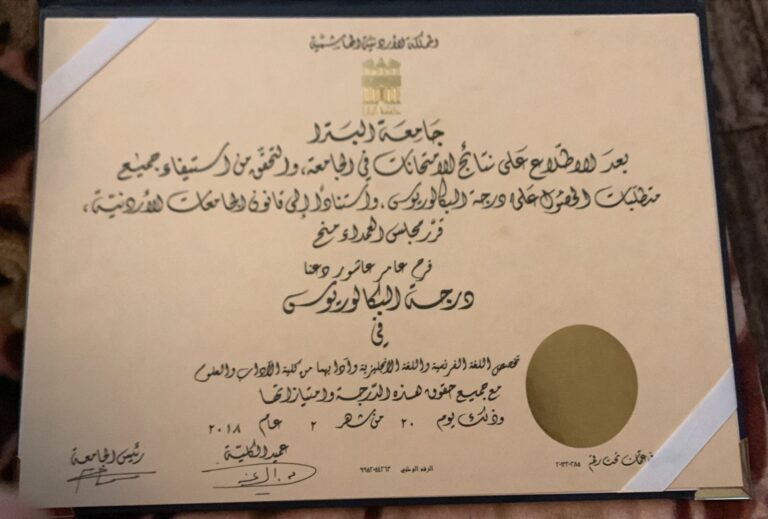 المملكة الأردنية الهاشمية
جامعة البترا
بعد الاطلاع على نتائج الامتحانات في الجامعة، والتحقق من استيفاء جميع
متطلبات الحصول على درجة البكالوريوس، واستنادًا إلى قانون الجامعات الأردنية،
قرر مجلس العمداء منح
فرح عامر عاشور دعنا
درجة البكالوريوس
في
تخصص اللغة الفرنسية واللغة الانجليزية وآدابهما من كلية الآداب والعلوم
مع جميع حقوق هذه الدرجة وامتيازاتها
وذلك يوم ٢٠ من شهر ٢ عام ٢٠١٨
رئيس الجامعة
عميد الكلية
الرقم الوطني
تحت رقم